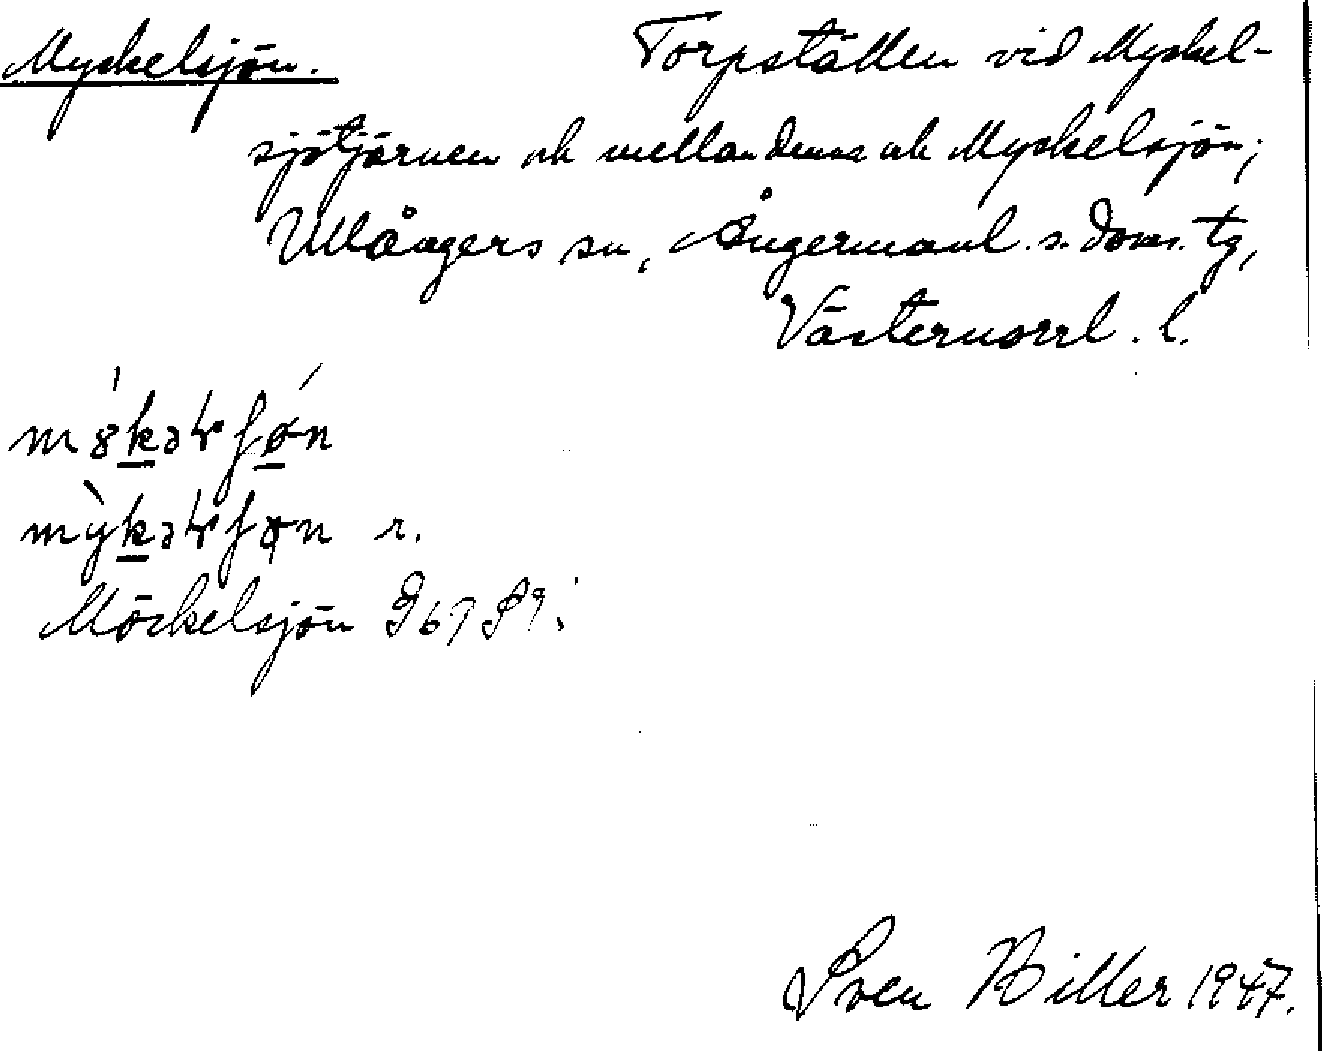 Myskelsjön. Torpställen vid Myskel-
sjötjärnen och mellan denna och Myskelsjön;
Ullångers sn, Ångermanl. s. doms. tg,
Västernorrl. l.
r.
Möckelsjön
Sven Biller 1947.